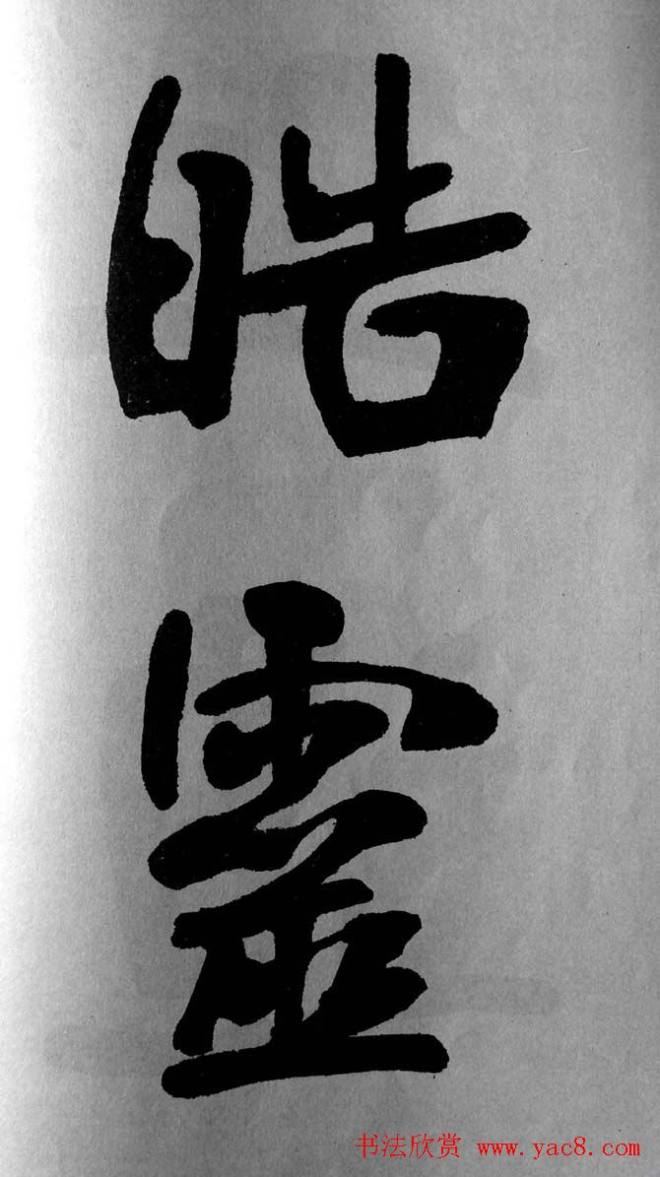 皓
靈
书法欣赏 www.yac8.com